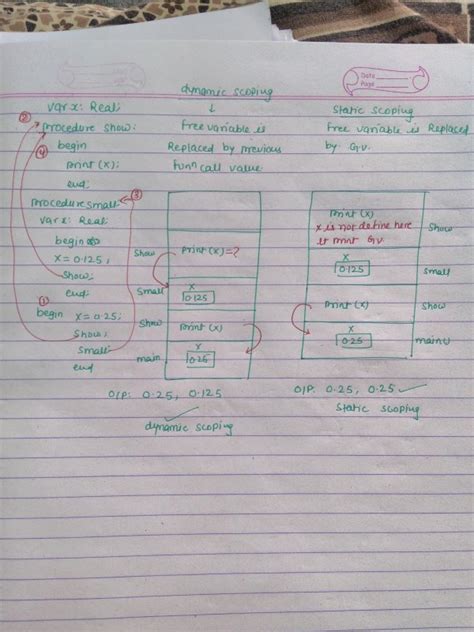 Date
Page
②
var x: Real;
procedure show;
④
begin
print (x);
end;
procedure small;
③
var x: Real
begin
x = 0.125;
Show;
end;
①
begin x = 0.25;
Show;
Small;
end
dynamic scoping
↓
free variable is
Replaced by previous
funⁿ call value.
Show
print (x) = ?
Small
x
0.125
Show
print (x)
main
x
0.25
O/P: 0.25, 0.125
dynamic scoping
Static scoping
free variable is Replaced
by G.V.
print (x)
x is not define here
it print G.V
Show
x
0.125
Small
print (x)
Show
x
0.25
main()
O/P: 0.25, 0.25
Static scoping